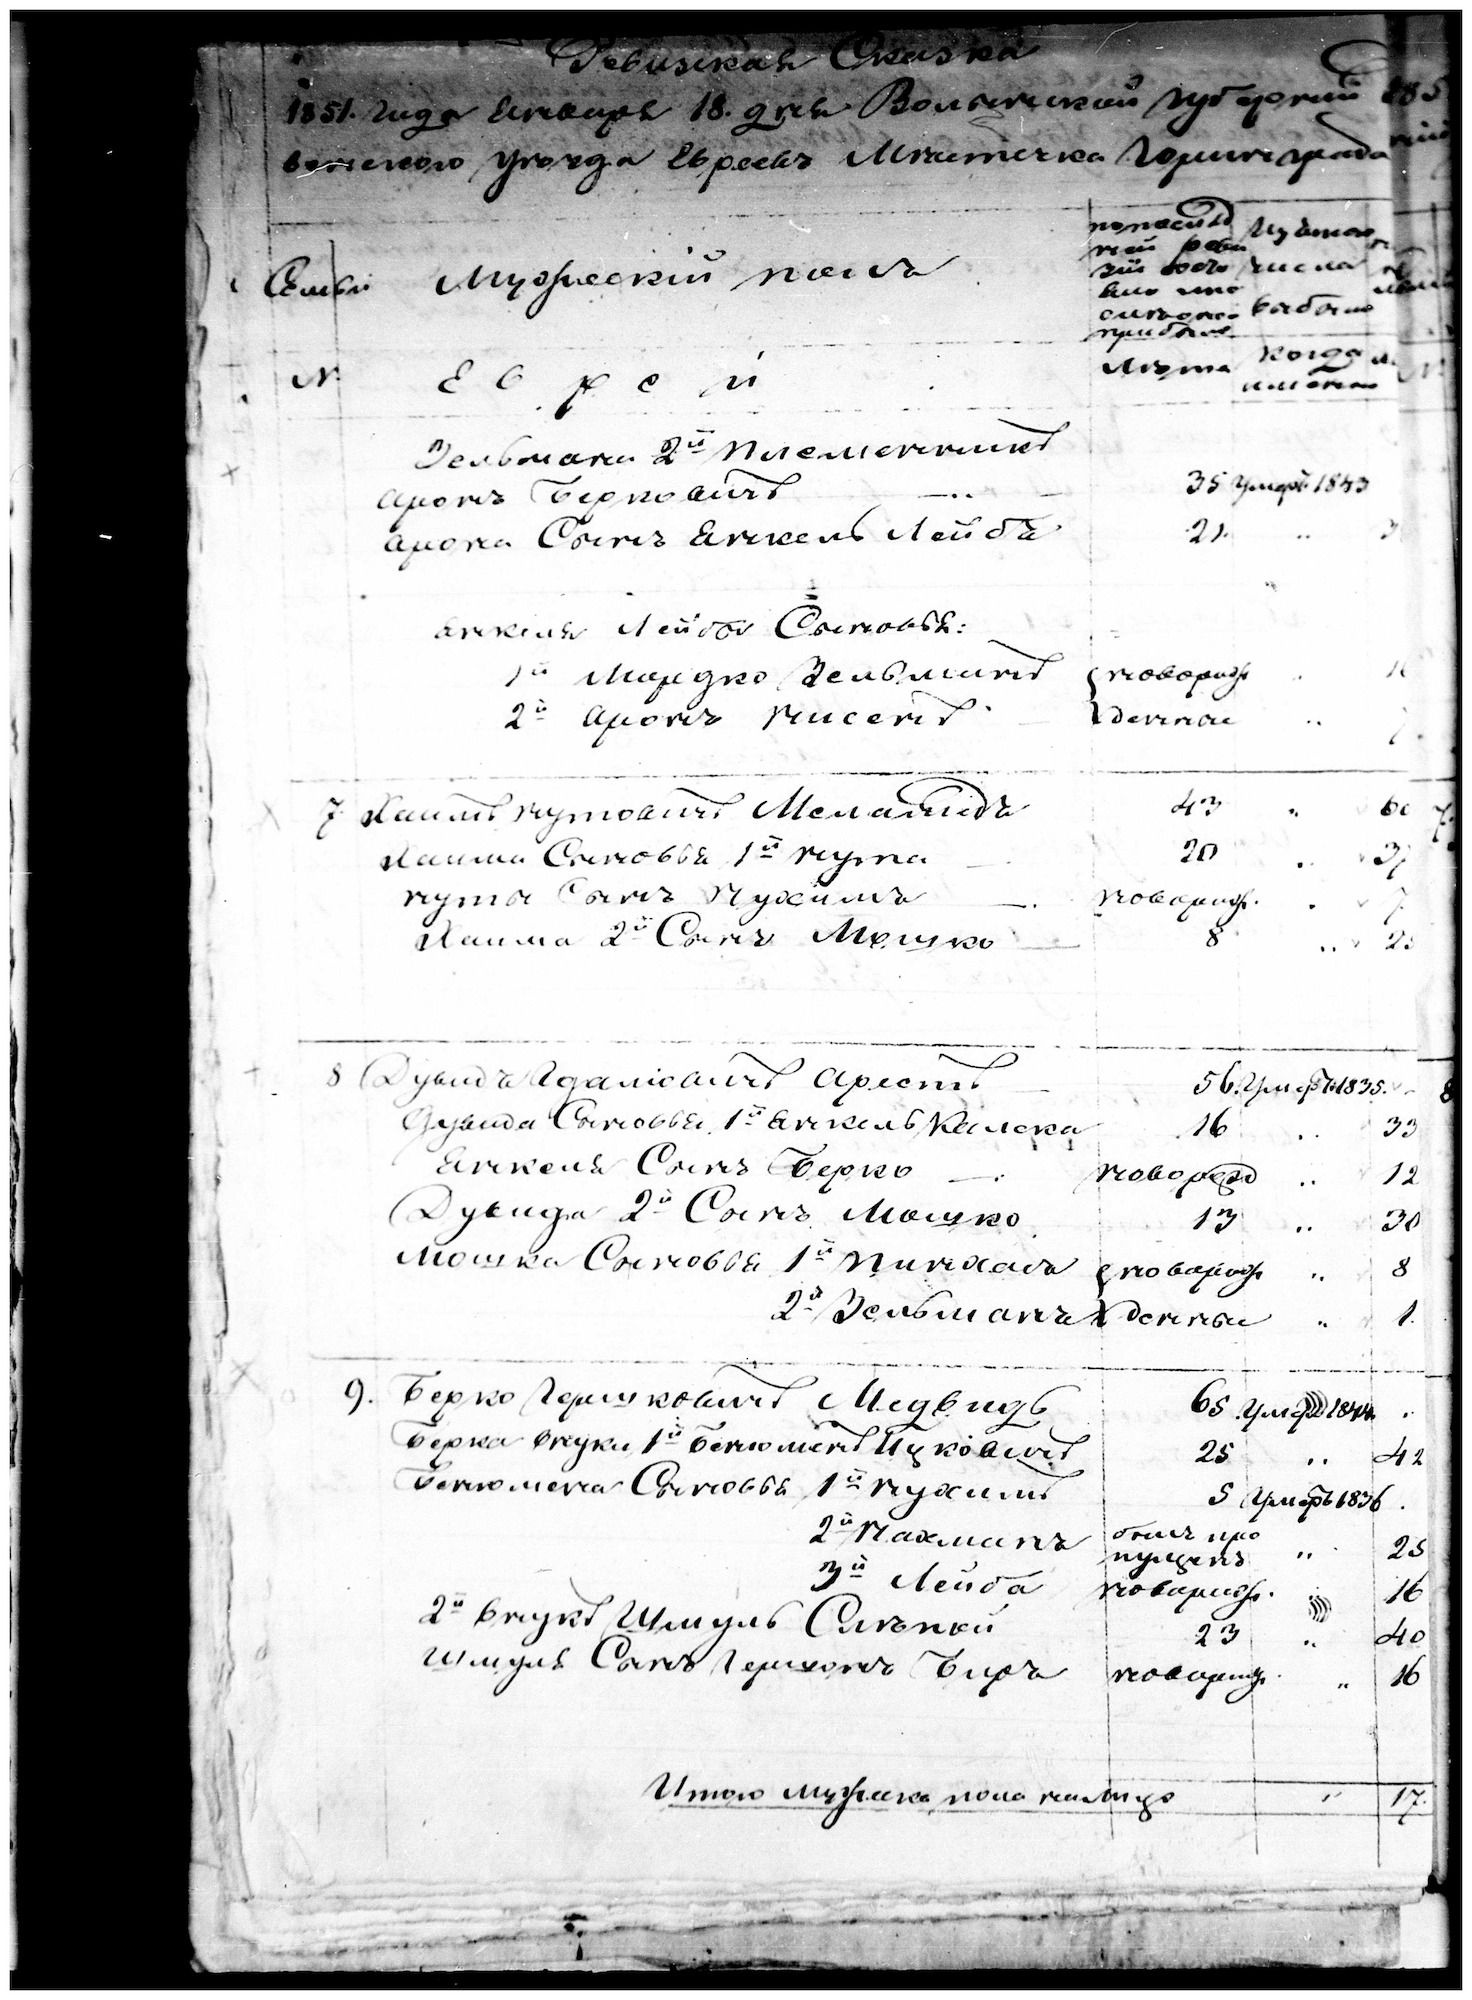 Ревизская Сказка
1851. года Января 18. дня Волынской губернии
венского уезда Евреевъ Местечка Горинграда
Семьи
Мужескій полъ
по последней ревизіи состояло или после оной прибыло
Изъ того числа выбыло
№
Еврей
Лета
Когда именно
Зельмана 2й племенникъ
Аронъ Берковичъ 35 Умеръ 1843
Арона Сынъ Янкель Лейба 21. "
Янкеля Лейбы Сыновья:
1й Мордко Зельманъ новорож
2й Аронъ Нисенъ денные "
7 Хаимъ Нутовичъ Меламидъ 43 "
Хаима Сыновья 1й Нута 20 " 37
Нуты Сынъ Нухимъ новорож. " 7
Хаима 2й Сынъ Мошко 8 "
8 Дувидъ Гдаліовичъ Арестъ 56. Умеръ 1835.
Дувида Сыновья 1й Янкель Калека 16 " 33
Янкеля Сынъ Берко новорожд " 12
Дувида 2й Сынъ Мошко 13 " 30
Мошка Сыновья 1й Пинхасъ новорож " 8
2й Зельманъ денные " 1.
9. Берко Гершковичъ Медведь 65 Умеръ 1844.
Берка внуки 1й Бенюминъ Ицковичъ 25 " 42
Бенюмина Сыновья 1й Нухимъ 5 Умеръ 1836
2й Нахманъ былъ пропущенъ " 25
3й Лейба новорож. " 16
2й внукъ Шмуль Слепой 23 " 40
Шмуля Сынъ Гершонъ Беръ новорож. " 16
Итого мужска пола налицо " 17.